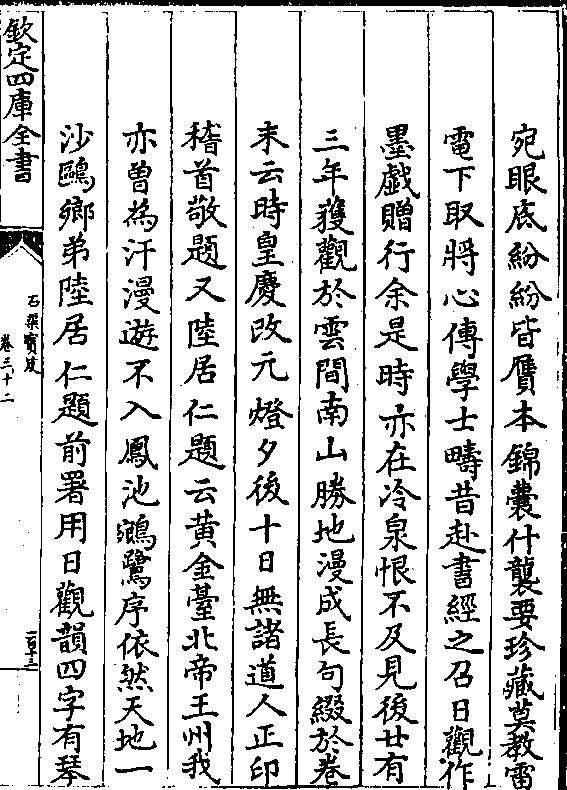 宛眼底紛紛皆贋本錦囊什襲要珍藏莫教雷
電下取將心傳學士疇昔赴書經之召日觀作
墨戲贈行余是時亦在冷泉恨不及見後廿有
三年獲觀於雲間南山勝地漫成長句綴於卷
末云時皇慶改元燈夕後十日無諸道人正印
稽首敬題又陸居仁題云黄金臺北帝王州我
亦曾為汗漫遊不入鳳池鵷鷺序依然天地一
沙鷗鄉弟陸居仁題前署用日觀韻四字有琴
欽定四庫全書
石渠寶笈
卷三十二